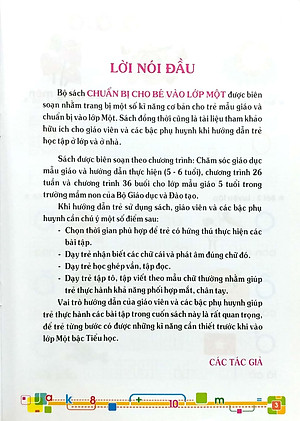 LỜI NÓI ĐẦU
Bộ sách CHUẨN BỊ CHO BÉ VÀO LỚP MỘT được biên
soạn nhằm trang bị một số kĩ năng cơ bản cho trẻ mẫu giáo và
chuẩn bị vào lớp Một. Sách đồng thời cũng là tài liệu tham khảo
hữu ích cho giáo viên và các bậc phụ huynh khi hướng dẫn trẻ
học tập ở lớp và ở nhà.
Sách được biên soạn theo chương trình: Chăm sóc giáo dục
mẫu giáo và hướng dẫn thực hiện (5 - 6 tuổi), chương trình 26
tuần và chương trình 36 buổi cho lớp mẫu giáo 5 tuổi trong
trường mầm non của Bộ Giáo dục và Đào tạo.
Khi hướng dẫn trẻ sử dụng sách, giáo viên và các bậc phụ
huynh cần chú ý một số điểm sau:
- Chọn thời gian phù hợp để trẻ có hứng thú thực hiện các
bài tập.
- Dạy trẻ nhận biết các chữ cái và phát âm đúng chữ đó.
- Dạy trẻ học ghép vần, tập đọc.
- Dạy trẻ tập tô, tập viết theo mẫu chữ thường nhằm giúp
trẻ thực hành khả năng phối hợp mắt, chân, tay.
Vai trò hướng dẫn của giáo viên và các bậc phụ huynh giúp
trẻ thực hành các bài tập trong cuốn sách này là rất quan trọng,
để trẻ từng bước có được những kĩ năng cần thiết trước khi vào
lớp Một bậc Tiểu học.
CÁC TÁC GIẢ
a k 8 + 10 m = 3